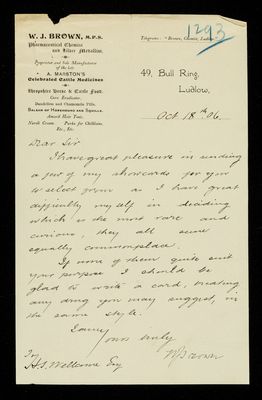 1293
W. J. BROWN, M.P.S.
Telegrams: "Brown, Chemist, Ludlow."
Pharmaceutical Chemist
and Silver Medallist.
Proprietor and Sole Manufacturer
of the late
A. MARSTON'S
Celebrated Cattle Medicines
Shropshire Horse & Cattle Food.
Corn Eradicator.
Dandelion and Chamomile Pills.
BALSAM OF HOREHOUND AND SQUILLS.
Award Hair Tonic.
Neroli Cream.
Etc., Etc.
49, Bull Ring,
Ludlow,
Oct 18th 06
Dear Sir
I have great pleasure in sending
a few of my showcards for you
to select from as I have great
difficulty myself in deciding
which is the most rare and
curious, they all seem
equally commonplace.
If none of them quite suit
your purpose I should be
glad to write a card, treating
any drug you may suggest, in
the same style.
Yours truly
WJBrown
To
H.S. Wellcome Esq